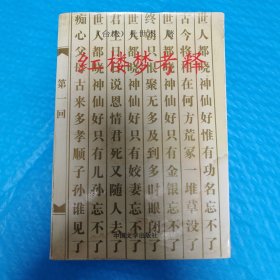 (台湾)杜世杰 著
红楼梦考释
世人都晓神仙好惟有功名忘不了
古今将相在何方荒冢一堆草没了
世人都晓神仙好只有金银忘不了
终朝只恨聚无多及到多时眼闭了
世人都晓神仙好只有姣妻忘不了
君生日日说恩情君死又随人去了
世人都晓神仙好只有儿孙忘不了
痴心父母古来多孝顺子孙谁见了
第一回
中国文学出版社